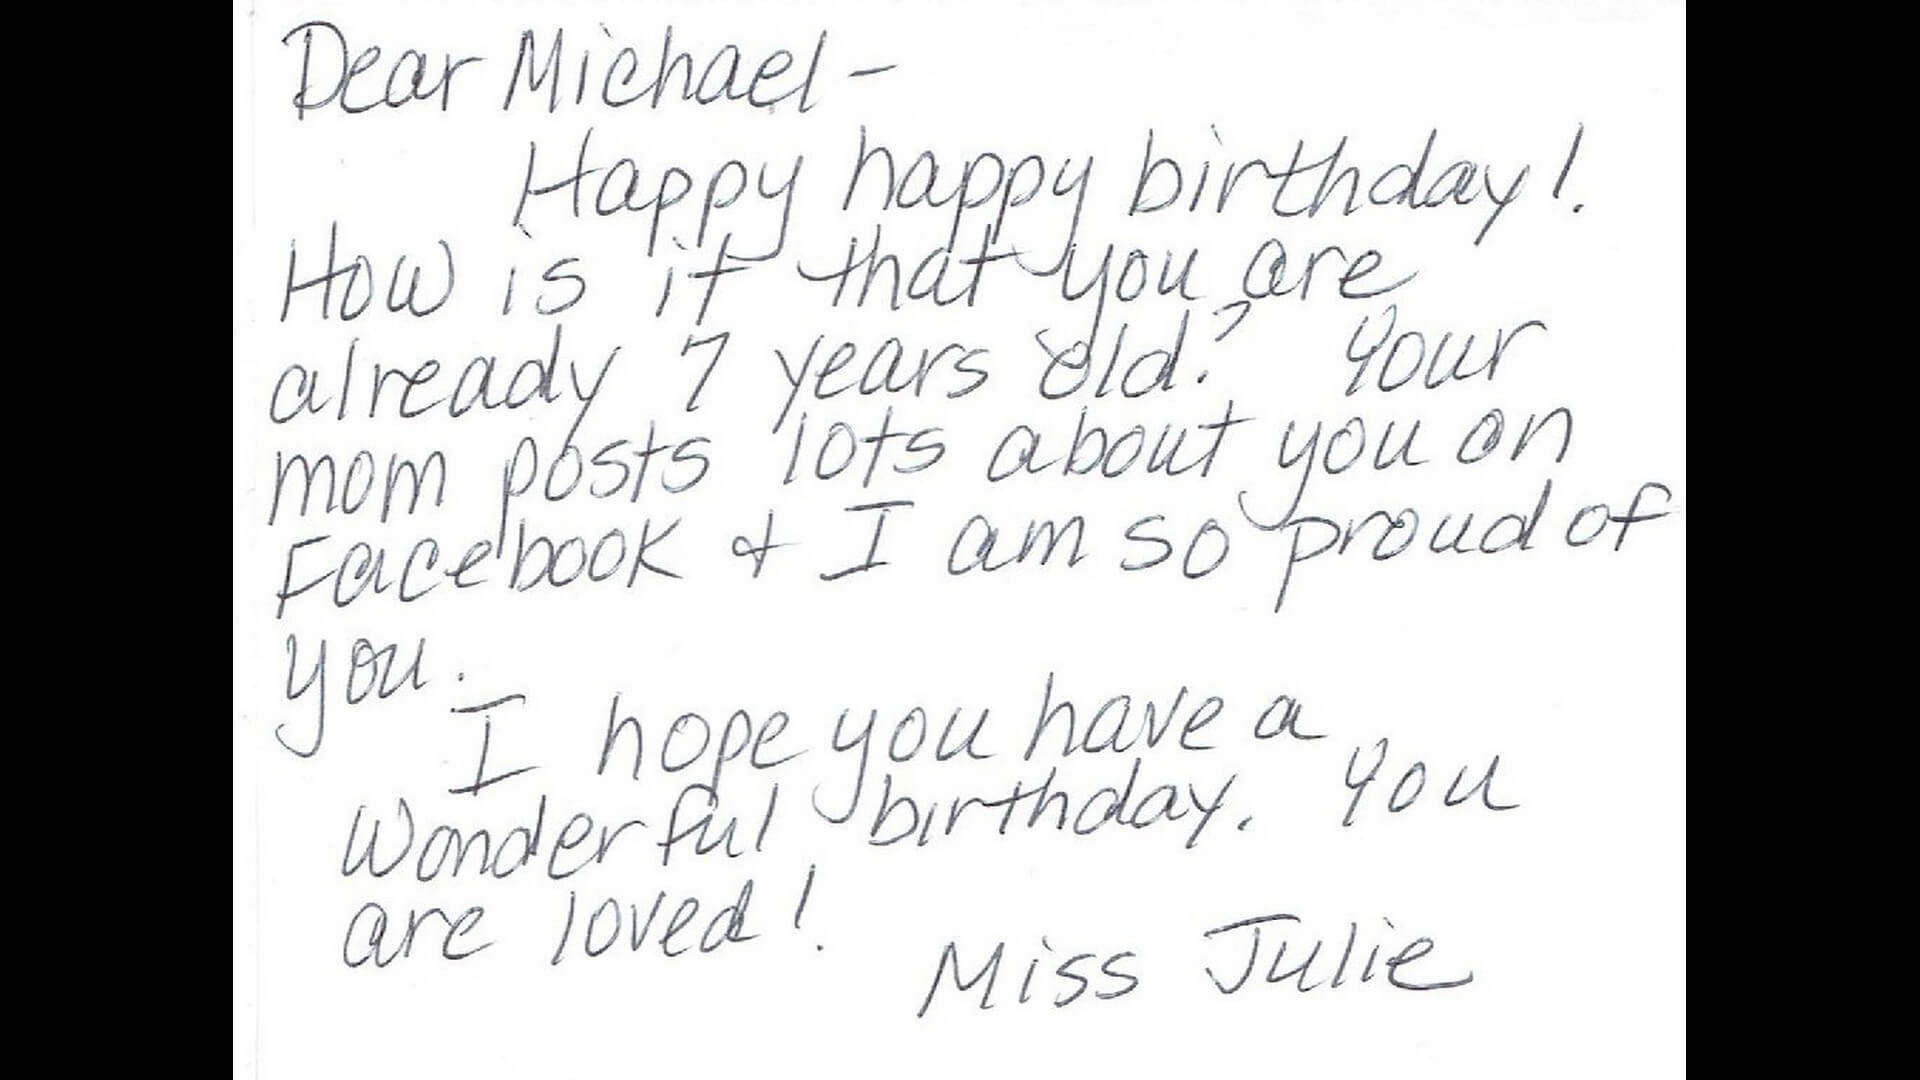 Dear Michael -
Happy happy birthday!
How is it that you are
already 7 years old? Your
mom posts lots about you on
Facebook & I am so proud of
you.
I hope you have a
Wonderful birthday. You
are loved!
Miss Julie